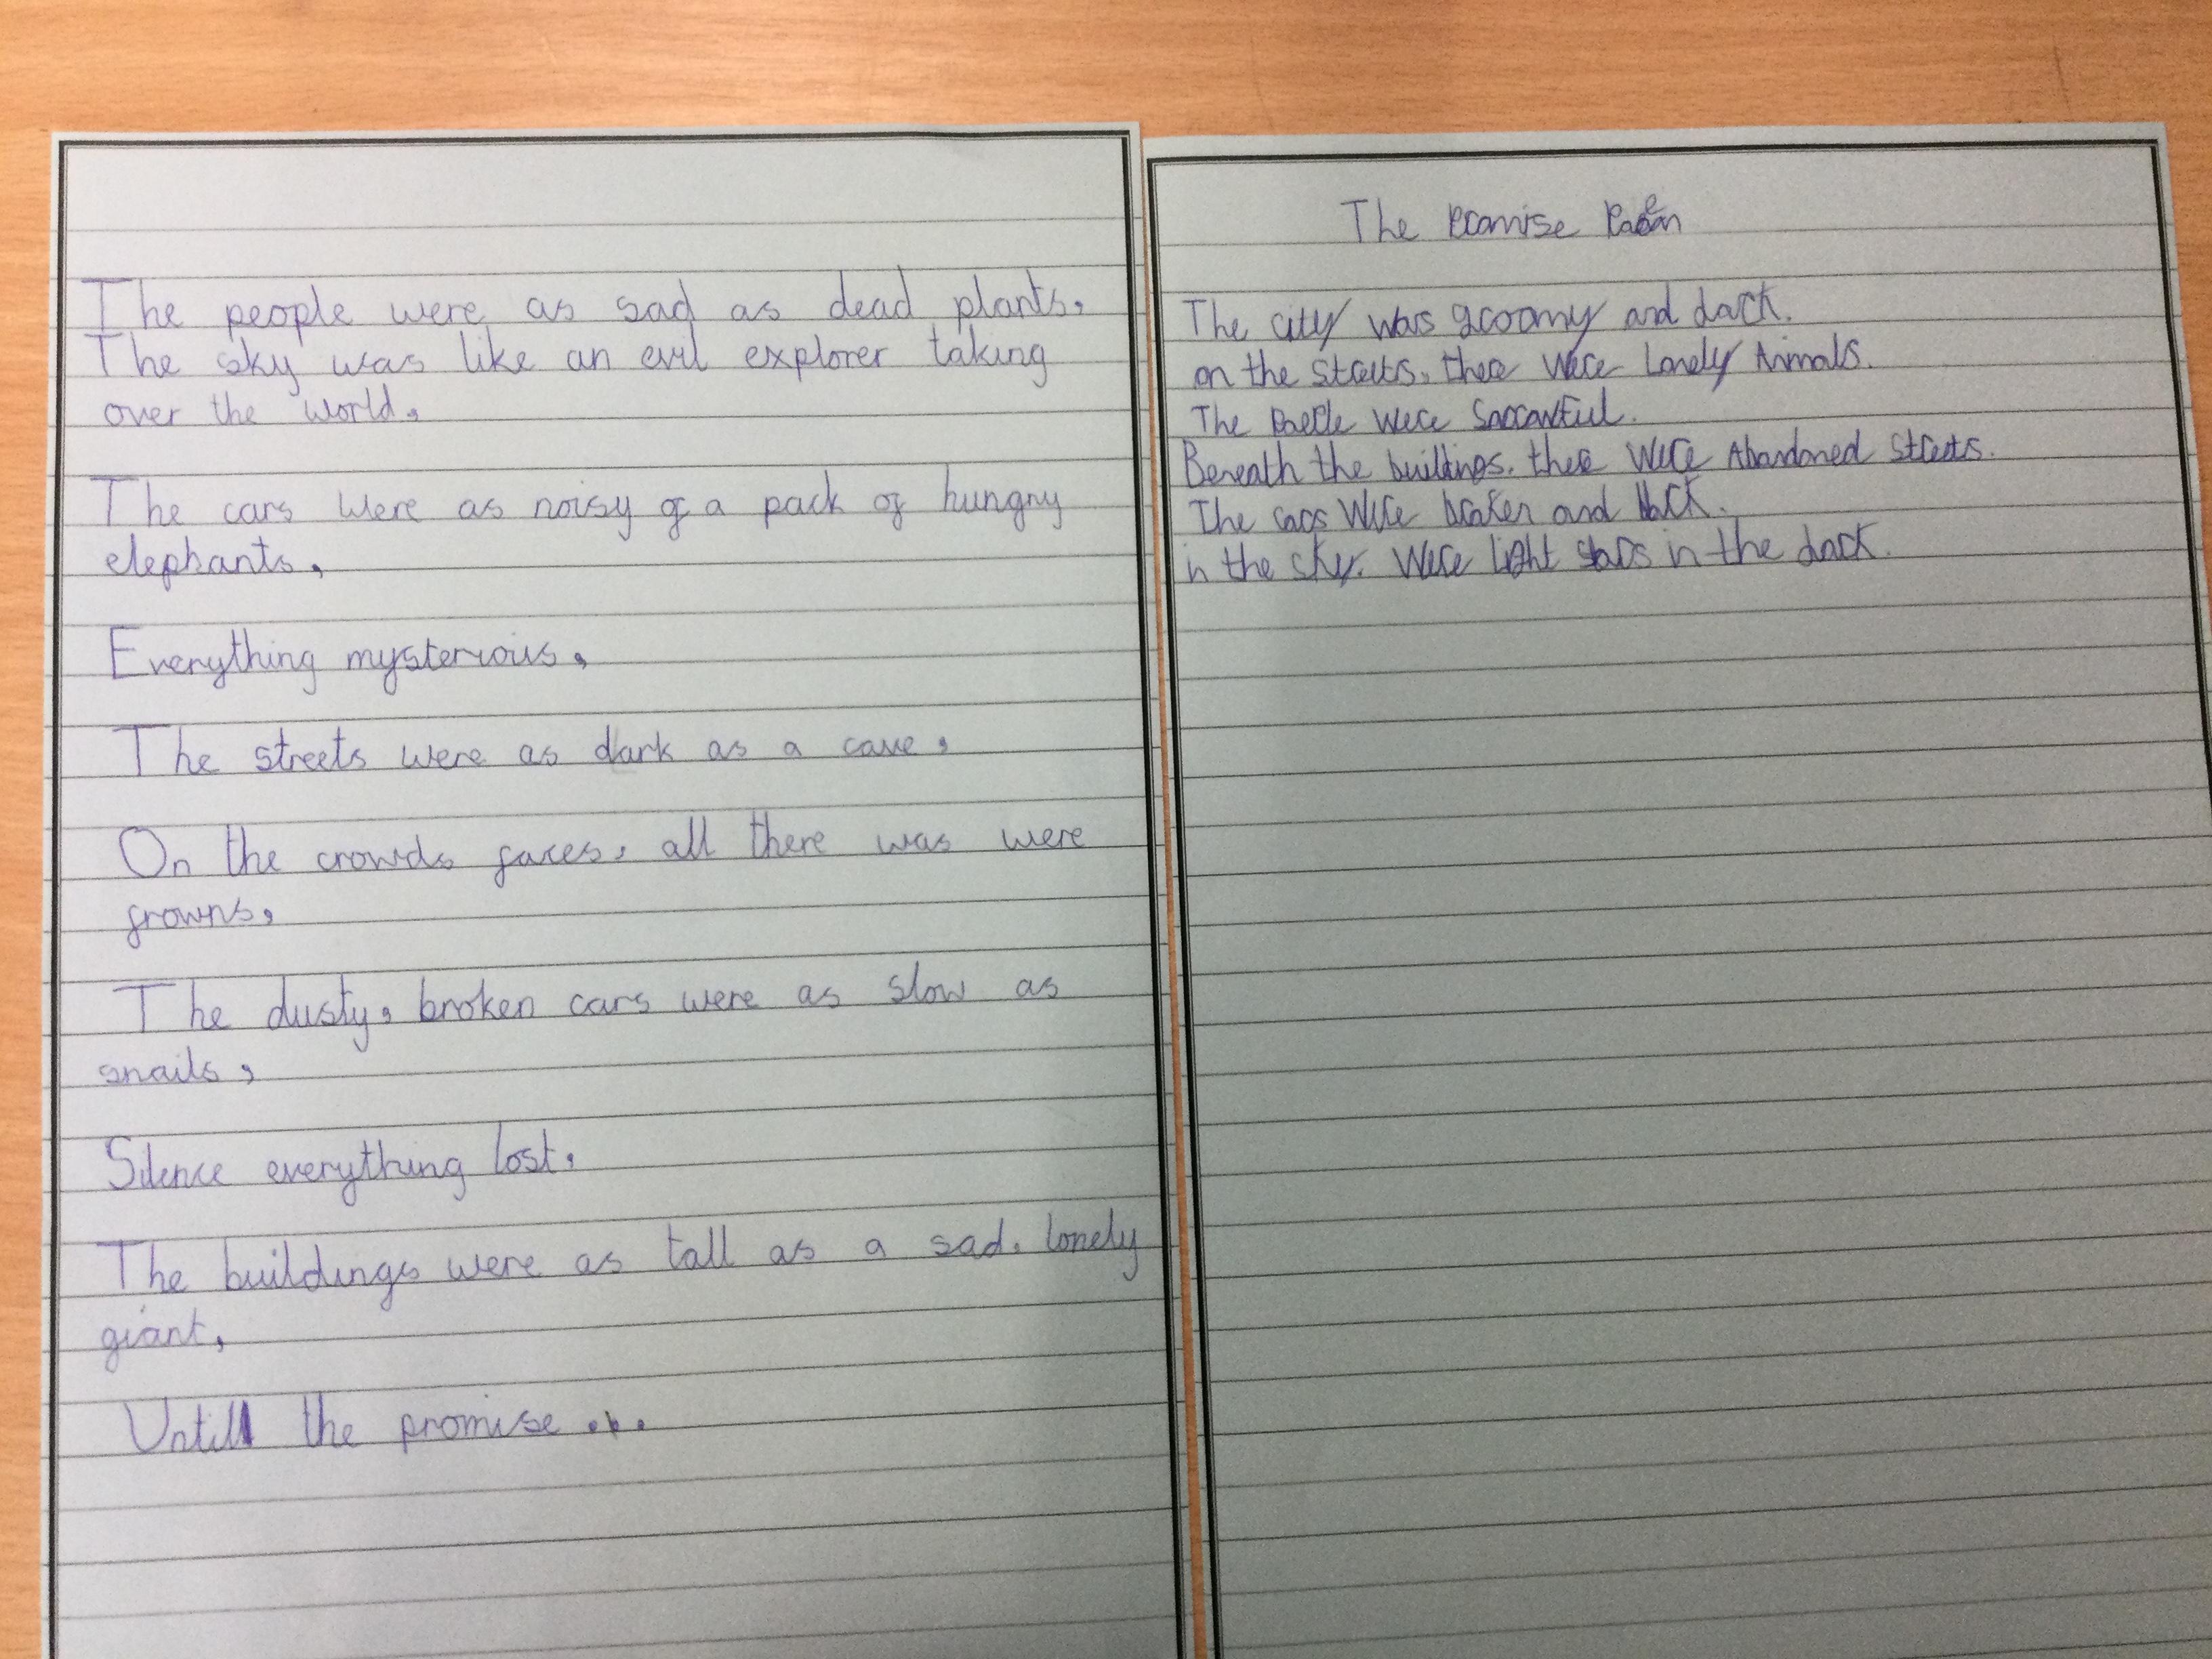 The people were as sad as dead plants,
The sky was like an evil explorer taking
over the world,
The cars were as noisy of a pack of hungry
elephants,
Everything mysterious,
The streets were as dark as a cave,
On the crowds faces, all there was were
frowns,
The dusty, broken cars were as slow as
snails,
Silence everything lost,
The buildings were as tall as a sad, lonely
giant,
Untill the promise...
The Promise
The city was groomy and dark.
on the streets, there were Lonely Animals.
The were
Beneath the buildings, there were Abandoned streets.
The cars were broken and
in the sky. Were light stars in the dark.